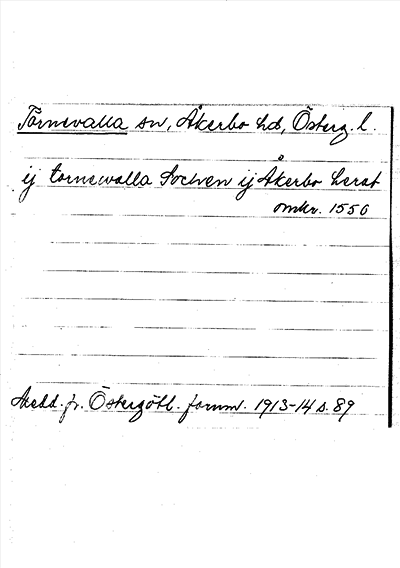 Törnevalla sn, Åkerbo hd, Österg. l.
ij tornewalla Sochen ij Åkerbo herat
omkr. 1550
Medd. fr. Östergötl. fornm. 1913-14 s. 89